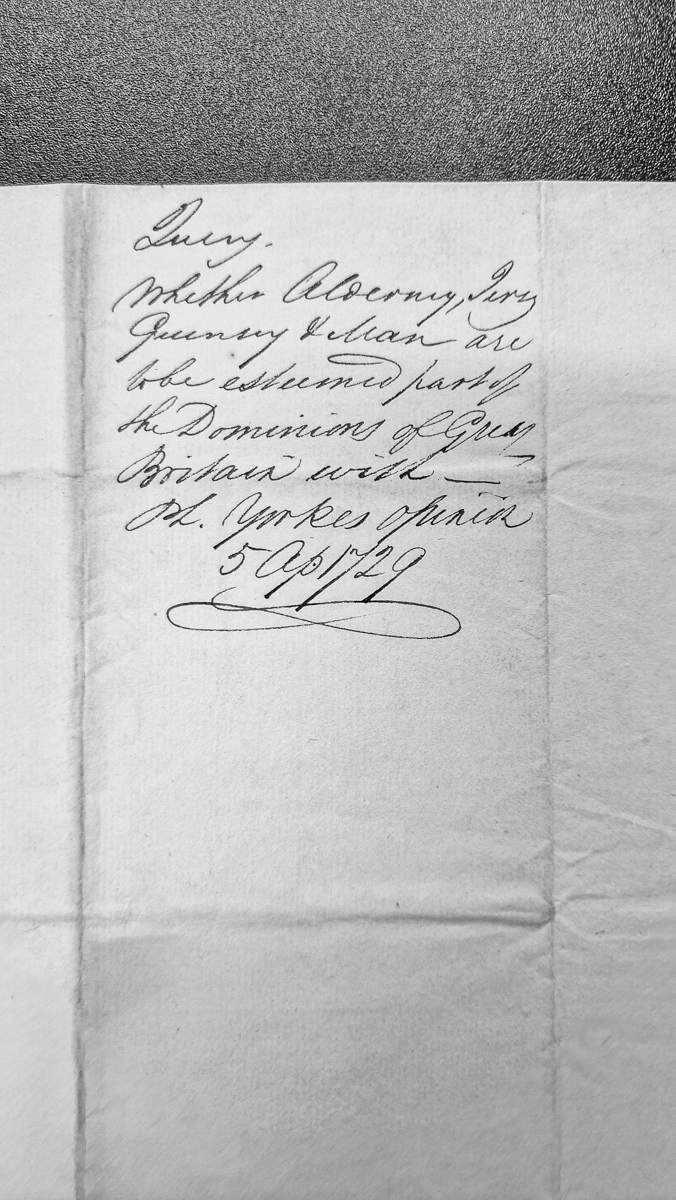 Query.
Whether Alderney, Jersy
Guernsey & Man are
to be esteemed part of
the Dominions of Great
Britain with —
Ph. Yorkes opinion
5 Ap 1729